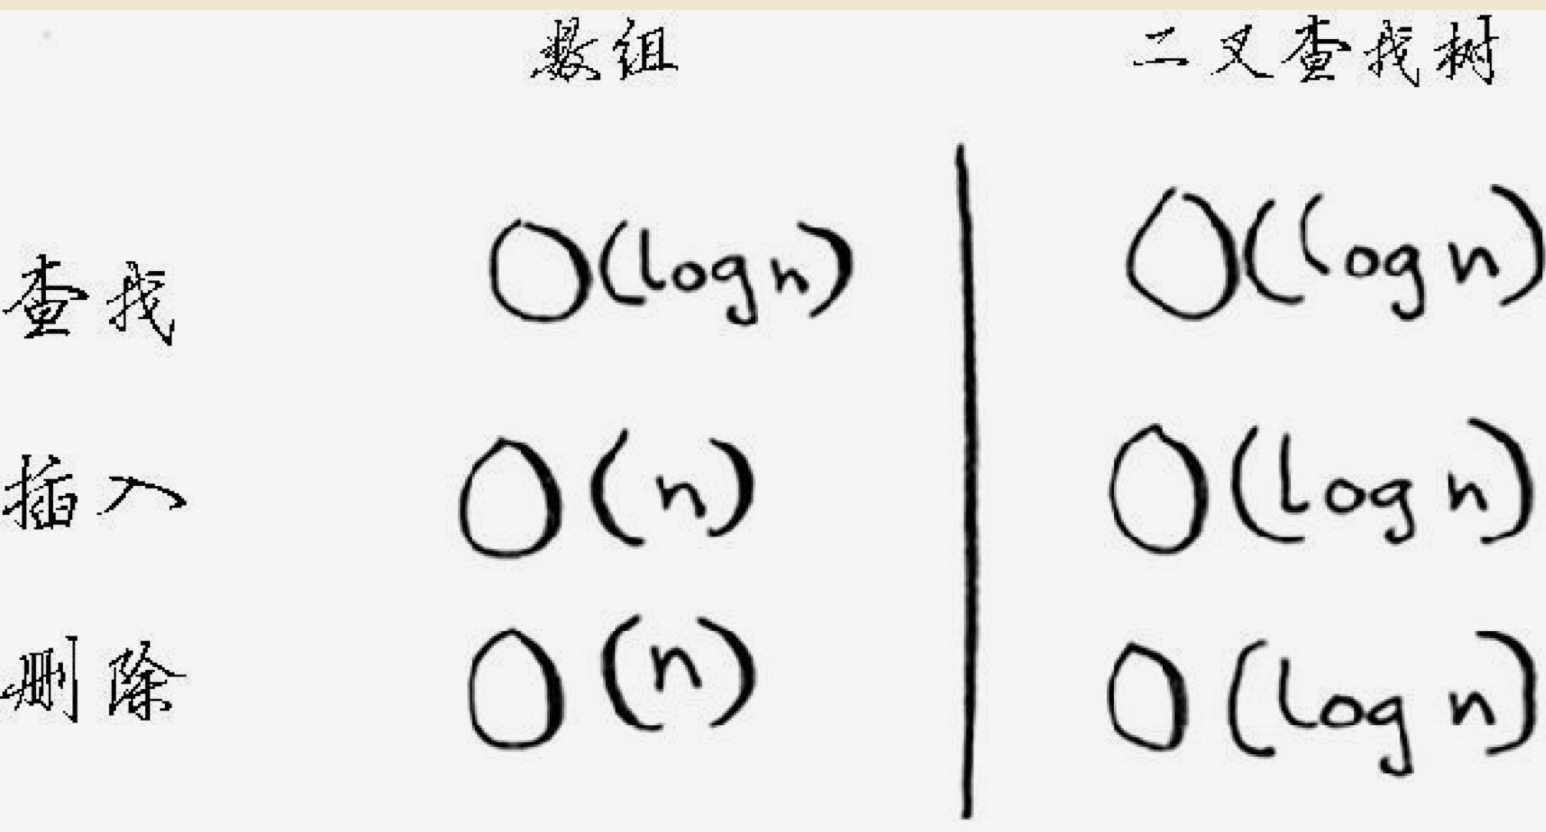 数组 二叉查找树
查找 O(log n) O(log n)
插入 O(n) O(log n)
删除 O(n) O(log n)